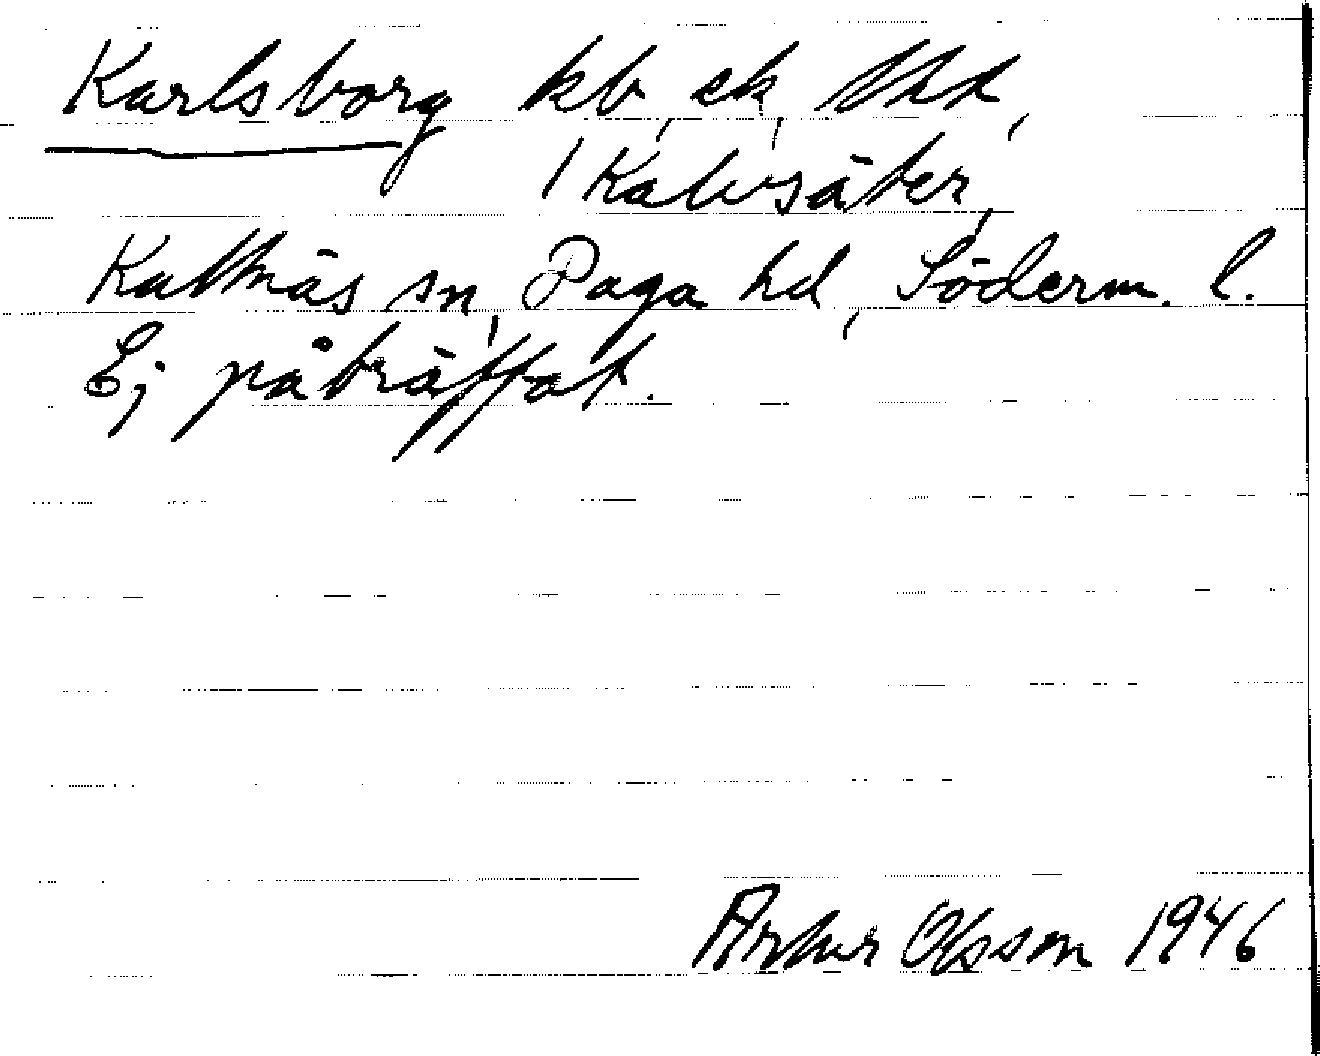 Karlsborg kb, ek,
1 Kalvsäter,
Kattnäs sn, Daga hd, Söderm. l.
Ej påträffat.
Artur Olsson 1946